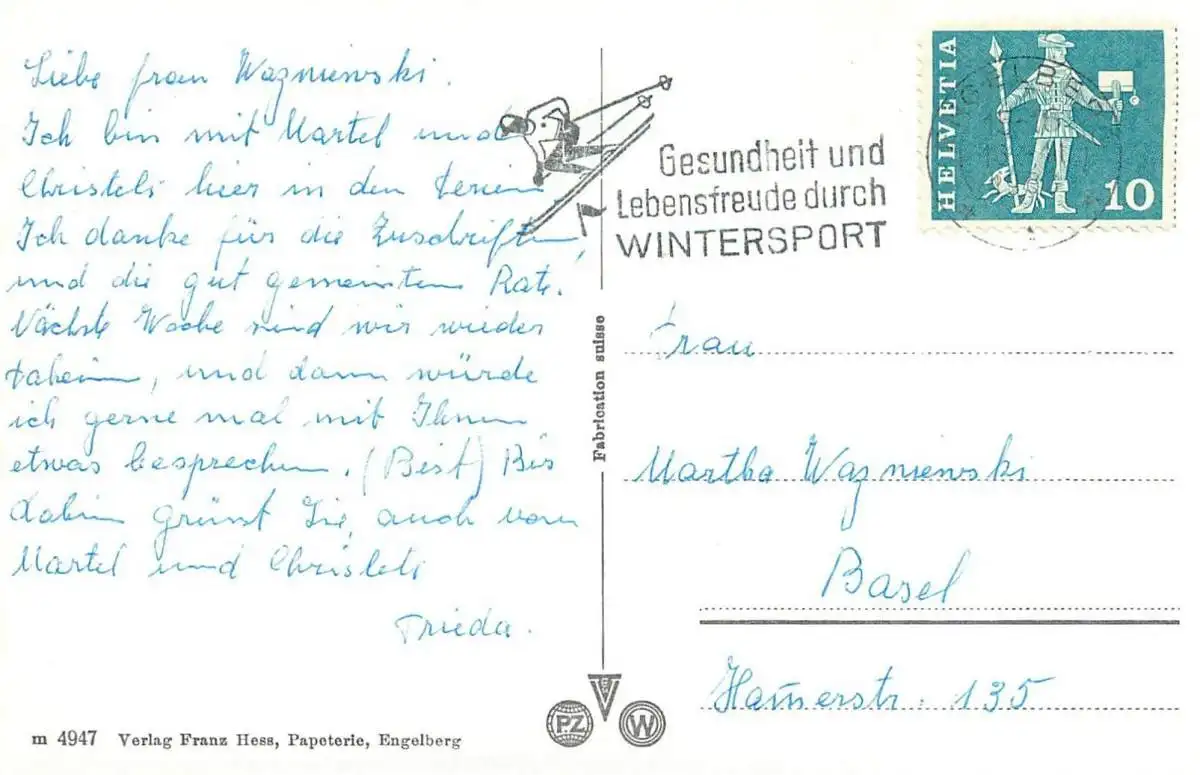 Liebe frau Wazniewski.
Ich bin mit Martel und
Christeli hier in den Ferien.
Ich danke für die Zuschriften
und die gut gemeinten Rate.
Nächste Woche sind wir wieder
taheim, und dann würde
ich gerne mal mit Ihnen
etwas besprechen. (Bist) Bis
dahin grüsst Sie, auch von
Martel und Christeli
Frieda.
m 4947 Verlag Franz Hess, Papeterie, Engelberg
Fabrication suisse
PZ
W
Gesundheit und
Lebensfreude durch
WINTERSPORT
HELVETIA
10
Frau
Martha Wazniewski
Basel
135